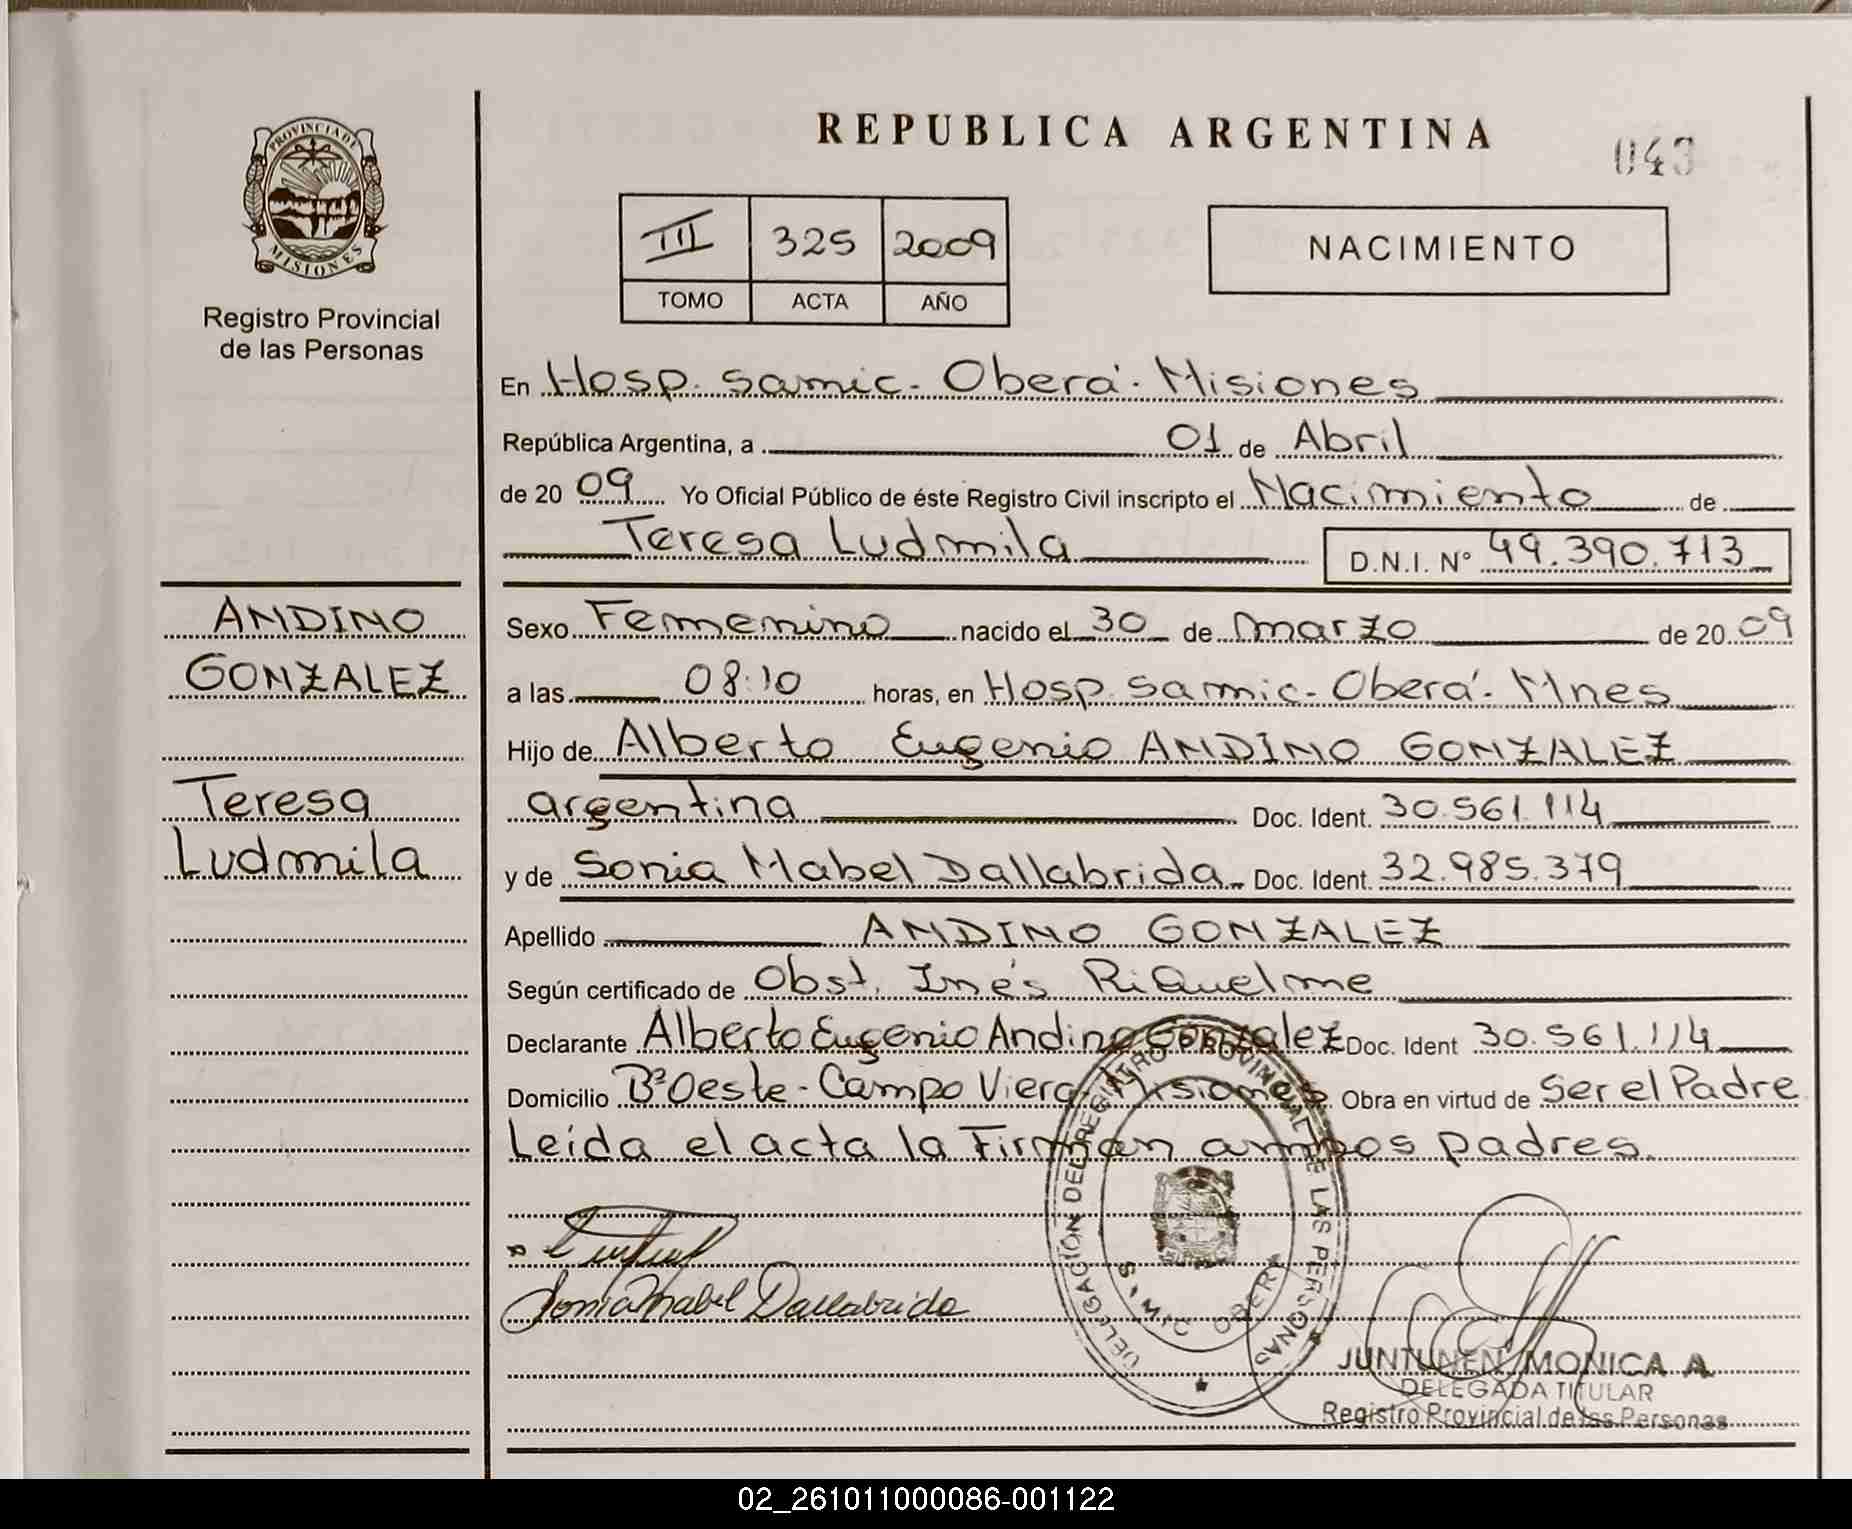 PROVINCIA DE
MISIONES
Registro Provincial
de las Personas
REPUBLICA ARGENTINA
043
III 325 2009
TOMO ACTA AÑO
NACIMIENTO
En Hosp. samic - Oberá - Misiones
República Argentina, a 01 de Abril
de 20 09 Yo Oficial Público de éste Registro Civil inscripto el Nacimiento de
Teresa Ludmila D.N.I. Nº 49.390.713
ANDINO
GONZALEZ
Teresa
Ludmila
Sexo Femenino nacido el 30 de marzo de 20 09
a las 08:10 horas, en Hosp. samic - Oberá - Mnes
Hijo de Alberto Eugenio ANDINO GONZALEZ
argentina Doc. Ident. 30.561.114
y de Sonia Mabel Dallabrida Doc. Ident. 32.985.379
Apellido ANDINO GONZALEZ
Según certificado de Obst. Inés RiQuelme
Declarante Alberto Eugenio Andino Gonzalez Doc. Ident 30.561.114
Domicilio Bº Oeste - Campo Viera - Misiones Obra en virtud de Ser el Padre
Leída el acta la Firman ambos padres.
Sonia Mabel Dallabrida
DELEGACIÓN DEL REGISTRO PROVINCIAL DE LAS PERSONAS
OBERA
JUNTUNEN, MONICA A
DELEGADA TITULAR
Registro Provincial de las Personas
02_261011000086-001122